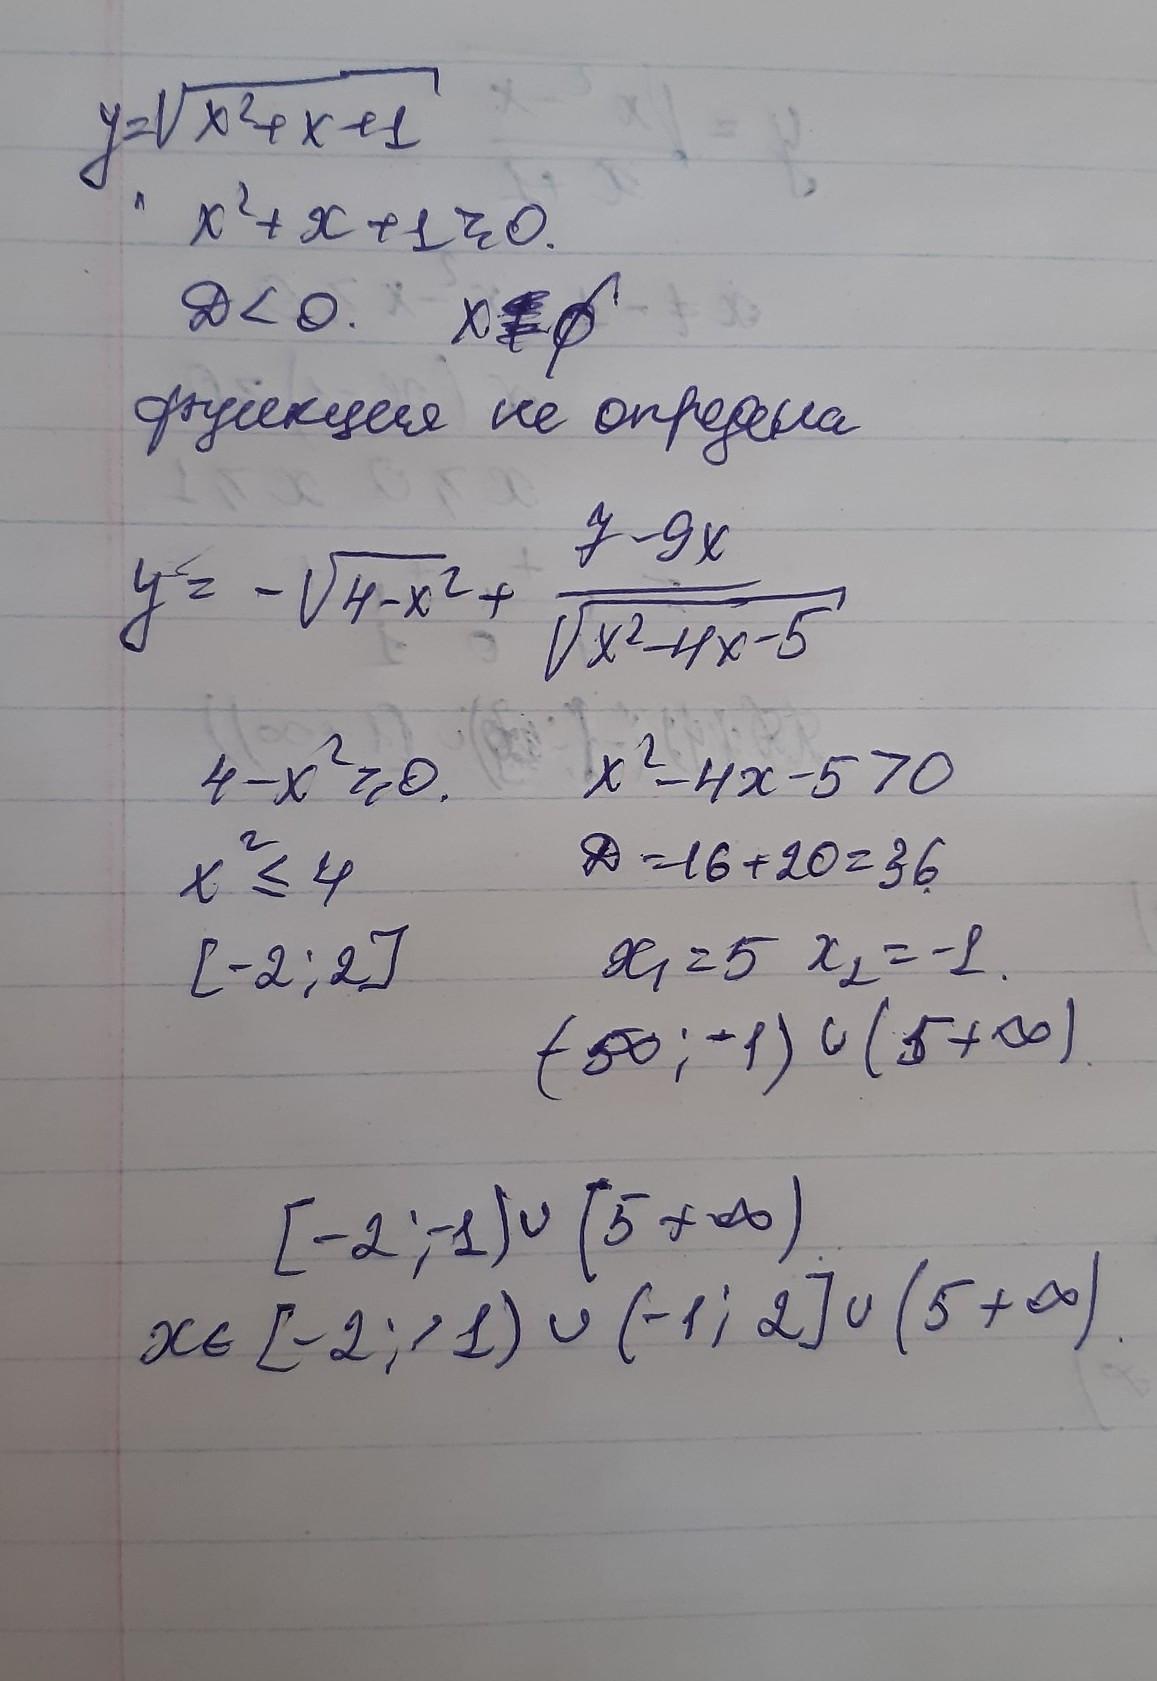 y=√(x²+x+1)
x²+x+1≥0.
D<0. x∈∅
функция не определа
y = -√(4-x²) + (7-9x)/√(x²-4x-5)
4-x²≥0. x²-4x-5>0
x²≤4 D=16+20=36
[-2;2] x₁=5 x₂=-1.
(-∞;-1)∪(5+∞).
[-2;-1)∪(5+∞)
x∈[-2;-1)∪(-1;2]∪(5+∞).